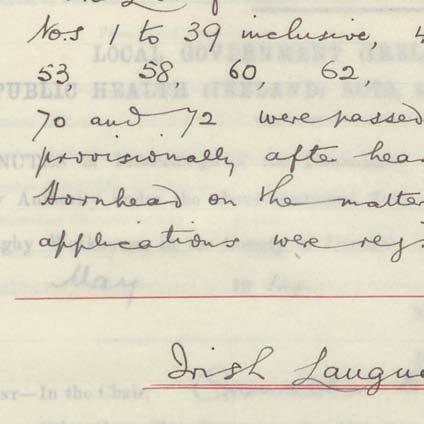 Nos 1 to 39 inclusive, 4
53, 58, 60, 62,
70 and 72 were passed
provisionally after hea
Hornhead on the matter
applications were rej
Irish Langu
LOCAL GOVERNMENT (IREL
PUBLIC HEALTH (IRELAND) ACTS,
May
In the Chair,